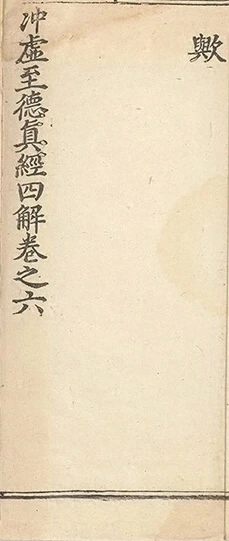 歟
冲虛至德眞經四解卷之六